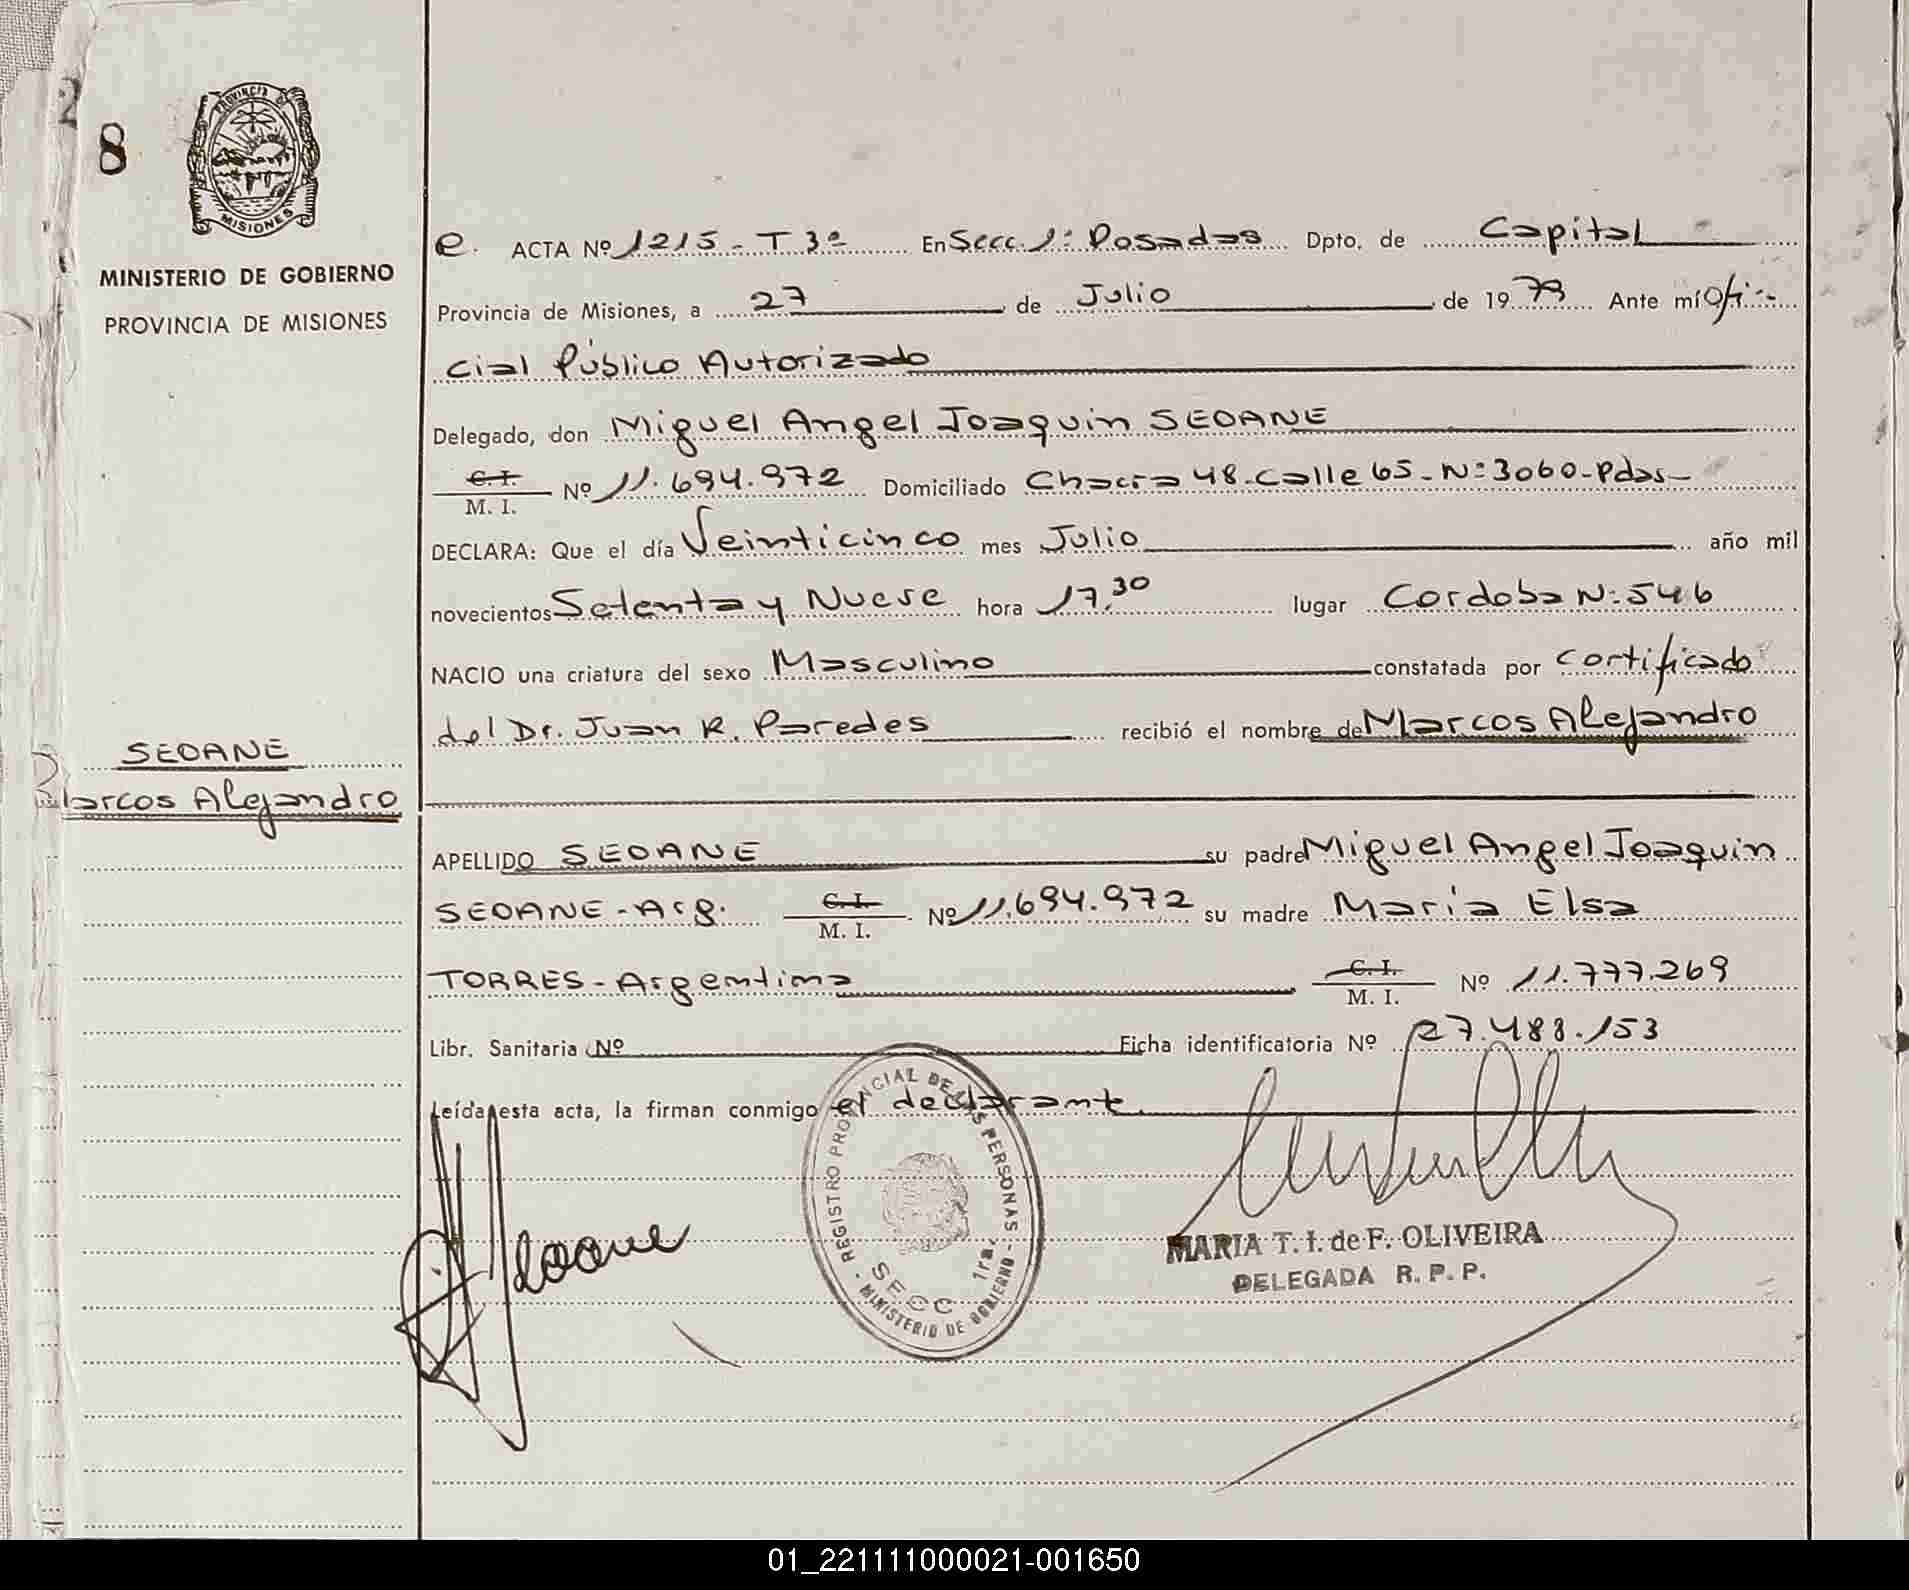 8
PROVINCIA DE
MISIONES
MINISTERIO DE GOBIERNO
PROVINCIA DE MISIONES
SEOANE
Marcos Alejandro
e. ACTA Nº 1215 - T 3º En Secc. 1ª Posadas Dpto. de Capital
Provincia de Misiones, a 27 de Julio de 1979 Ante mí Ofi-
cial Público Autorizado
Delegado, don Miguel Angel Joaquin SEOANE
C. I.
M. I. Nº 11.694.972 Domiciliado Chacra 48-Calle 65-Nº 3060-Pdas-
DECLARA: Que el día Veinticinco mes Julio año mil
novecientos Setenta y Nueve hora 17.30 lugar Cordoba Nº 546
NACIO una criatura del sexo Masculino constatada por certificado
del Dr. Juan R. Paredes recibió el nombre de Marcos Alejandro
APELLIDO SEOANE su padre Miguel Angel Joaquin
SEOANE-Arg. C. I.
M. I. Nº 11.694.972 su madre Maria Elsa
TORRES-Argentina C. I.
M. I. Nº 11.777.269
Libr. Sanitaria Nº Ficha identificatoria Nº 27.488.153
Leída esta acta, la firman conmigo el declarante
REGISTRO PROVINCIAL DE LAS PERSONAS
SECC 1ra.
MINISTERIO DE GOBIERNO
Seoane
MARIA T. I. de F. OLIVEIRA
DELEGADA R. P. P.
01_221111000021-001650